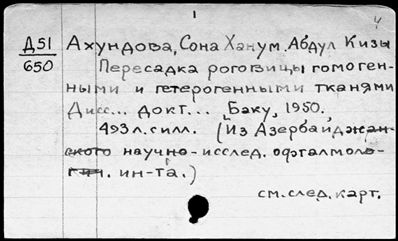 1
4
Д51 Ахундова, Сона Ханум Абдул Кизы
650 Пересадка роговицы гомоген-
ными и гетерогенными тканями
Дисс... докт... Баку, 1950.
493 л. с илл. (Из Азербайджан-
ского научно-исслед. офталмоло-
гич. ин-та.)
см. след. карт.